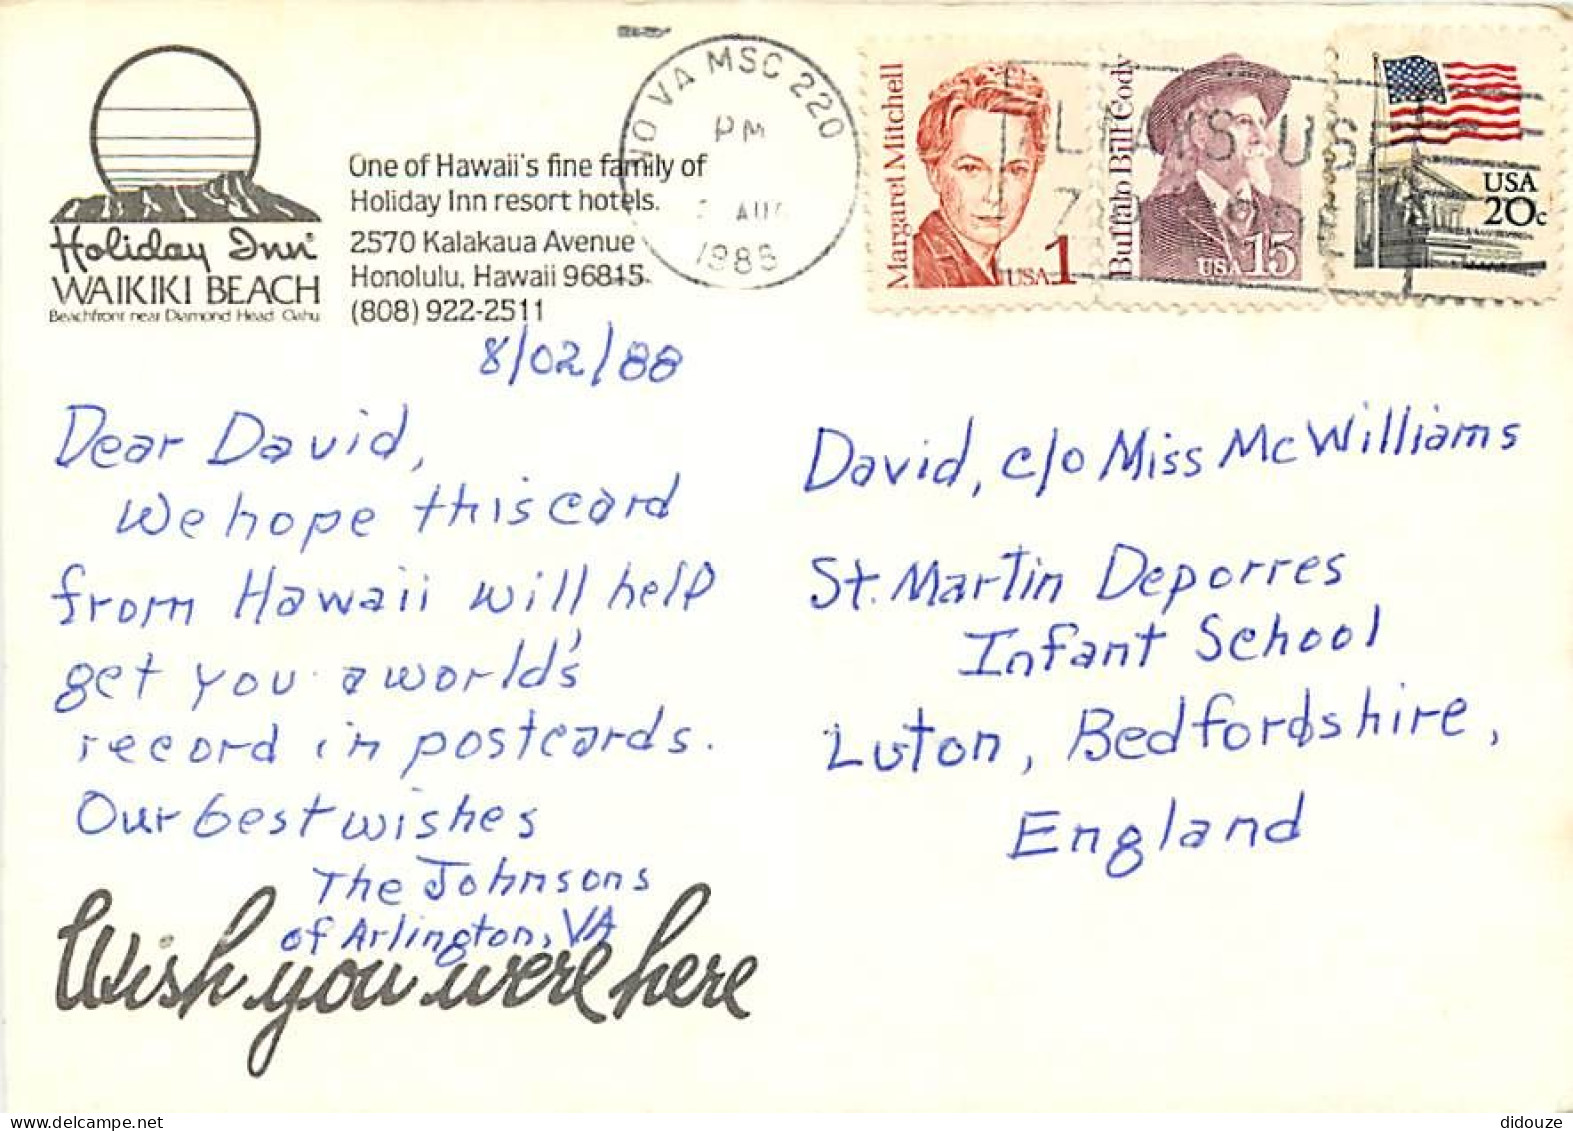 Holiday Inn®
WAIKIKI BEACH
Beachfront near Diamond Head Oahu
One of Hawaii's fine family of
Holiday Inn resort hotels.
2570 Kalakaua Avenue
Honolulu, Hawaii 96815
(808) 922-2511
NO VA MSC 220
PM
AUG
1988
Margaret Mitchell
USA 1
Buffalo Bill Cody
USA 15
USA
20c
ALWAYS USE
8/02/88
Dear David,
We hope this card
from Hawaii will help
get you a world's
record in postcards.
Our best wishes
The Johnsons
of Arlington, VA
Wish you were here
David, c/o Miss McWilliams
St. Martin Deporres
Infant School
Luton, Bedfordshire,
England
didouze